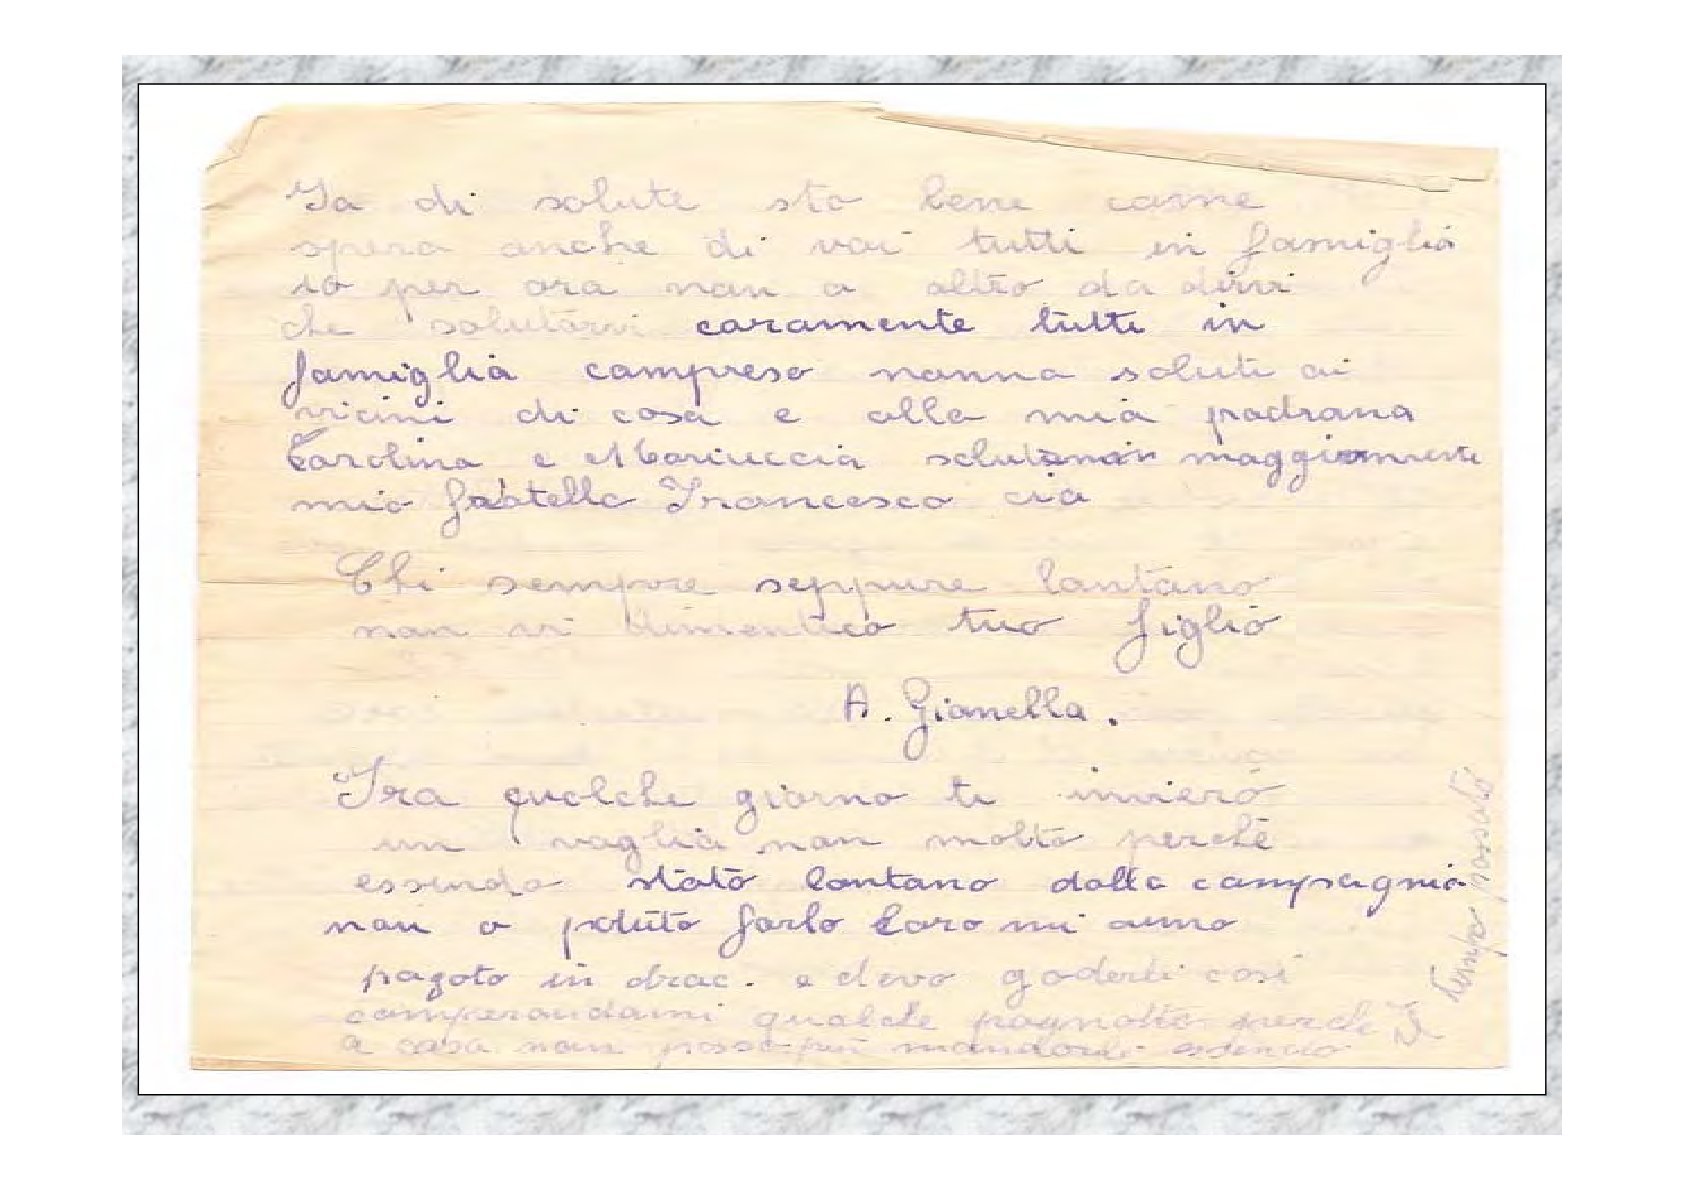 Io di salute sto bene come
spero anche di voi tutti in famiglia
io per ora non o altro da dirvi
che salutarvi caramente tutti in
famiglia compreso nonna saluti ai
vicini di casa e alla mia padrona
Carolina e Mariuccia salutami maggiormente
mio fratello Francesco cia
Chi sempre seppure lontano
non vi dimentica tuo figlio
A. Gianella.
Fra qualche giorno te invierò
un vaglia non molto perchè
essendo stato lontano dalla compagnia
non o potuto farlo Caro mi anno
pagato in drac. e devo goderli così
comperandomi qualche pagnotta perch
a casa non posso più mandarli essencio
tempo passato